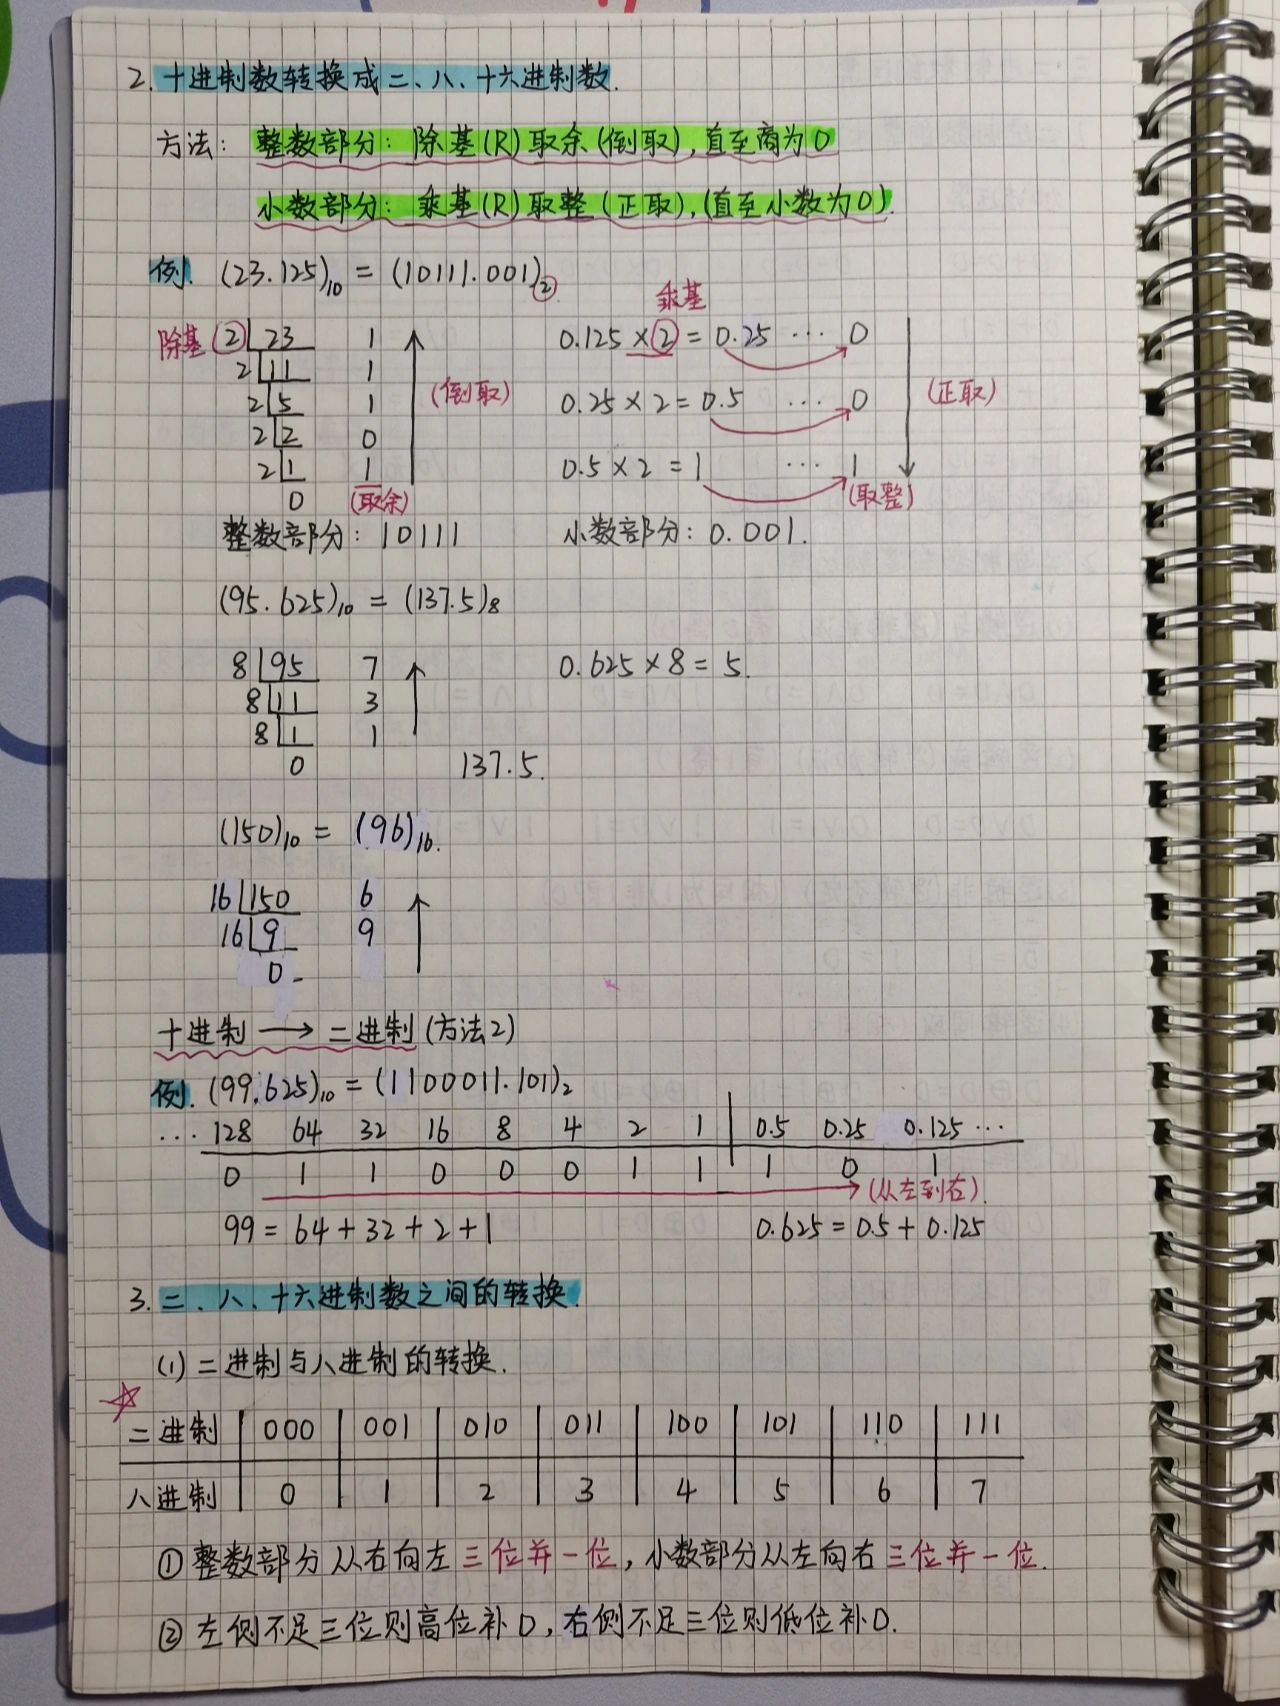 2. 十进制数转换成二、八、十六进制数.
方法: 整数部分: 除基(R)取余(倒取), 直至商为0
小数部分: 乘基(R)取整(正取), (直至小数为0).
例. (23.125)10 = (10111.001)2
乘基
除基 2 23 1 0.125 × 2 = 0.25 ... 0
2 11 1 (倒取) (正取)
2 5 1 0.25 × 2 = 0.5 ... 0
2 2 0
2 1 1 0.5 × 2 = 1 ... 1
0 (取余) (取整)
整数部分: 10111 小数部分: 0.001.
(95.625)10 = (137.5)8
8 95 7 0.625 × 8 = 5.
8 11 3
8 1 1
0 137.5.
(150)10 = (96)16.
16 150 6
16 9 9
0
十进制 → 二进制 (方法2)
例. (99.625)10 = (1100011.101)2
... 128 64 32 16 8 4 2 1 0.5 0.25 0.125 ...
0 1 1 0 0 0 1 1 1 0 1
(从左到右).
99 = 64 + 32 + 2 + 1 0.625 = 0.5 + 0.125
3. 二、八、十六进制数之间的转换.
(1) 二进制与八进制的转换.
☆
二进制 000 001 010 011 100 101 110 111
八进制 0 1 2 3 4 5 6 7
① 整数部分从右向左三位并一位, 小数部分从左向右三位并一位.
② 左侧不足三位则高位补0, 右侧不足三位则低位补0.